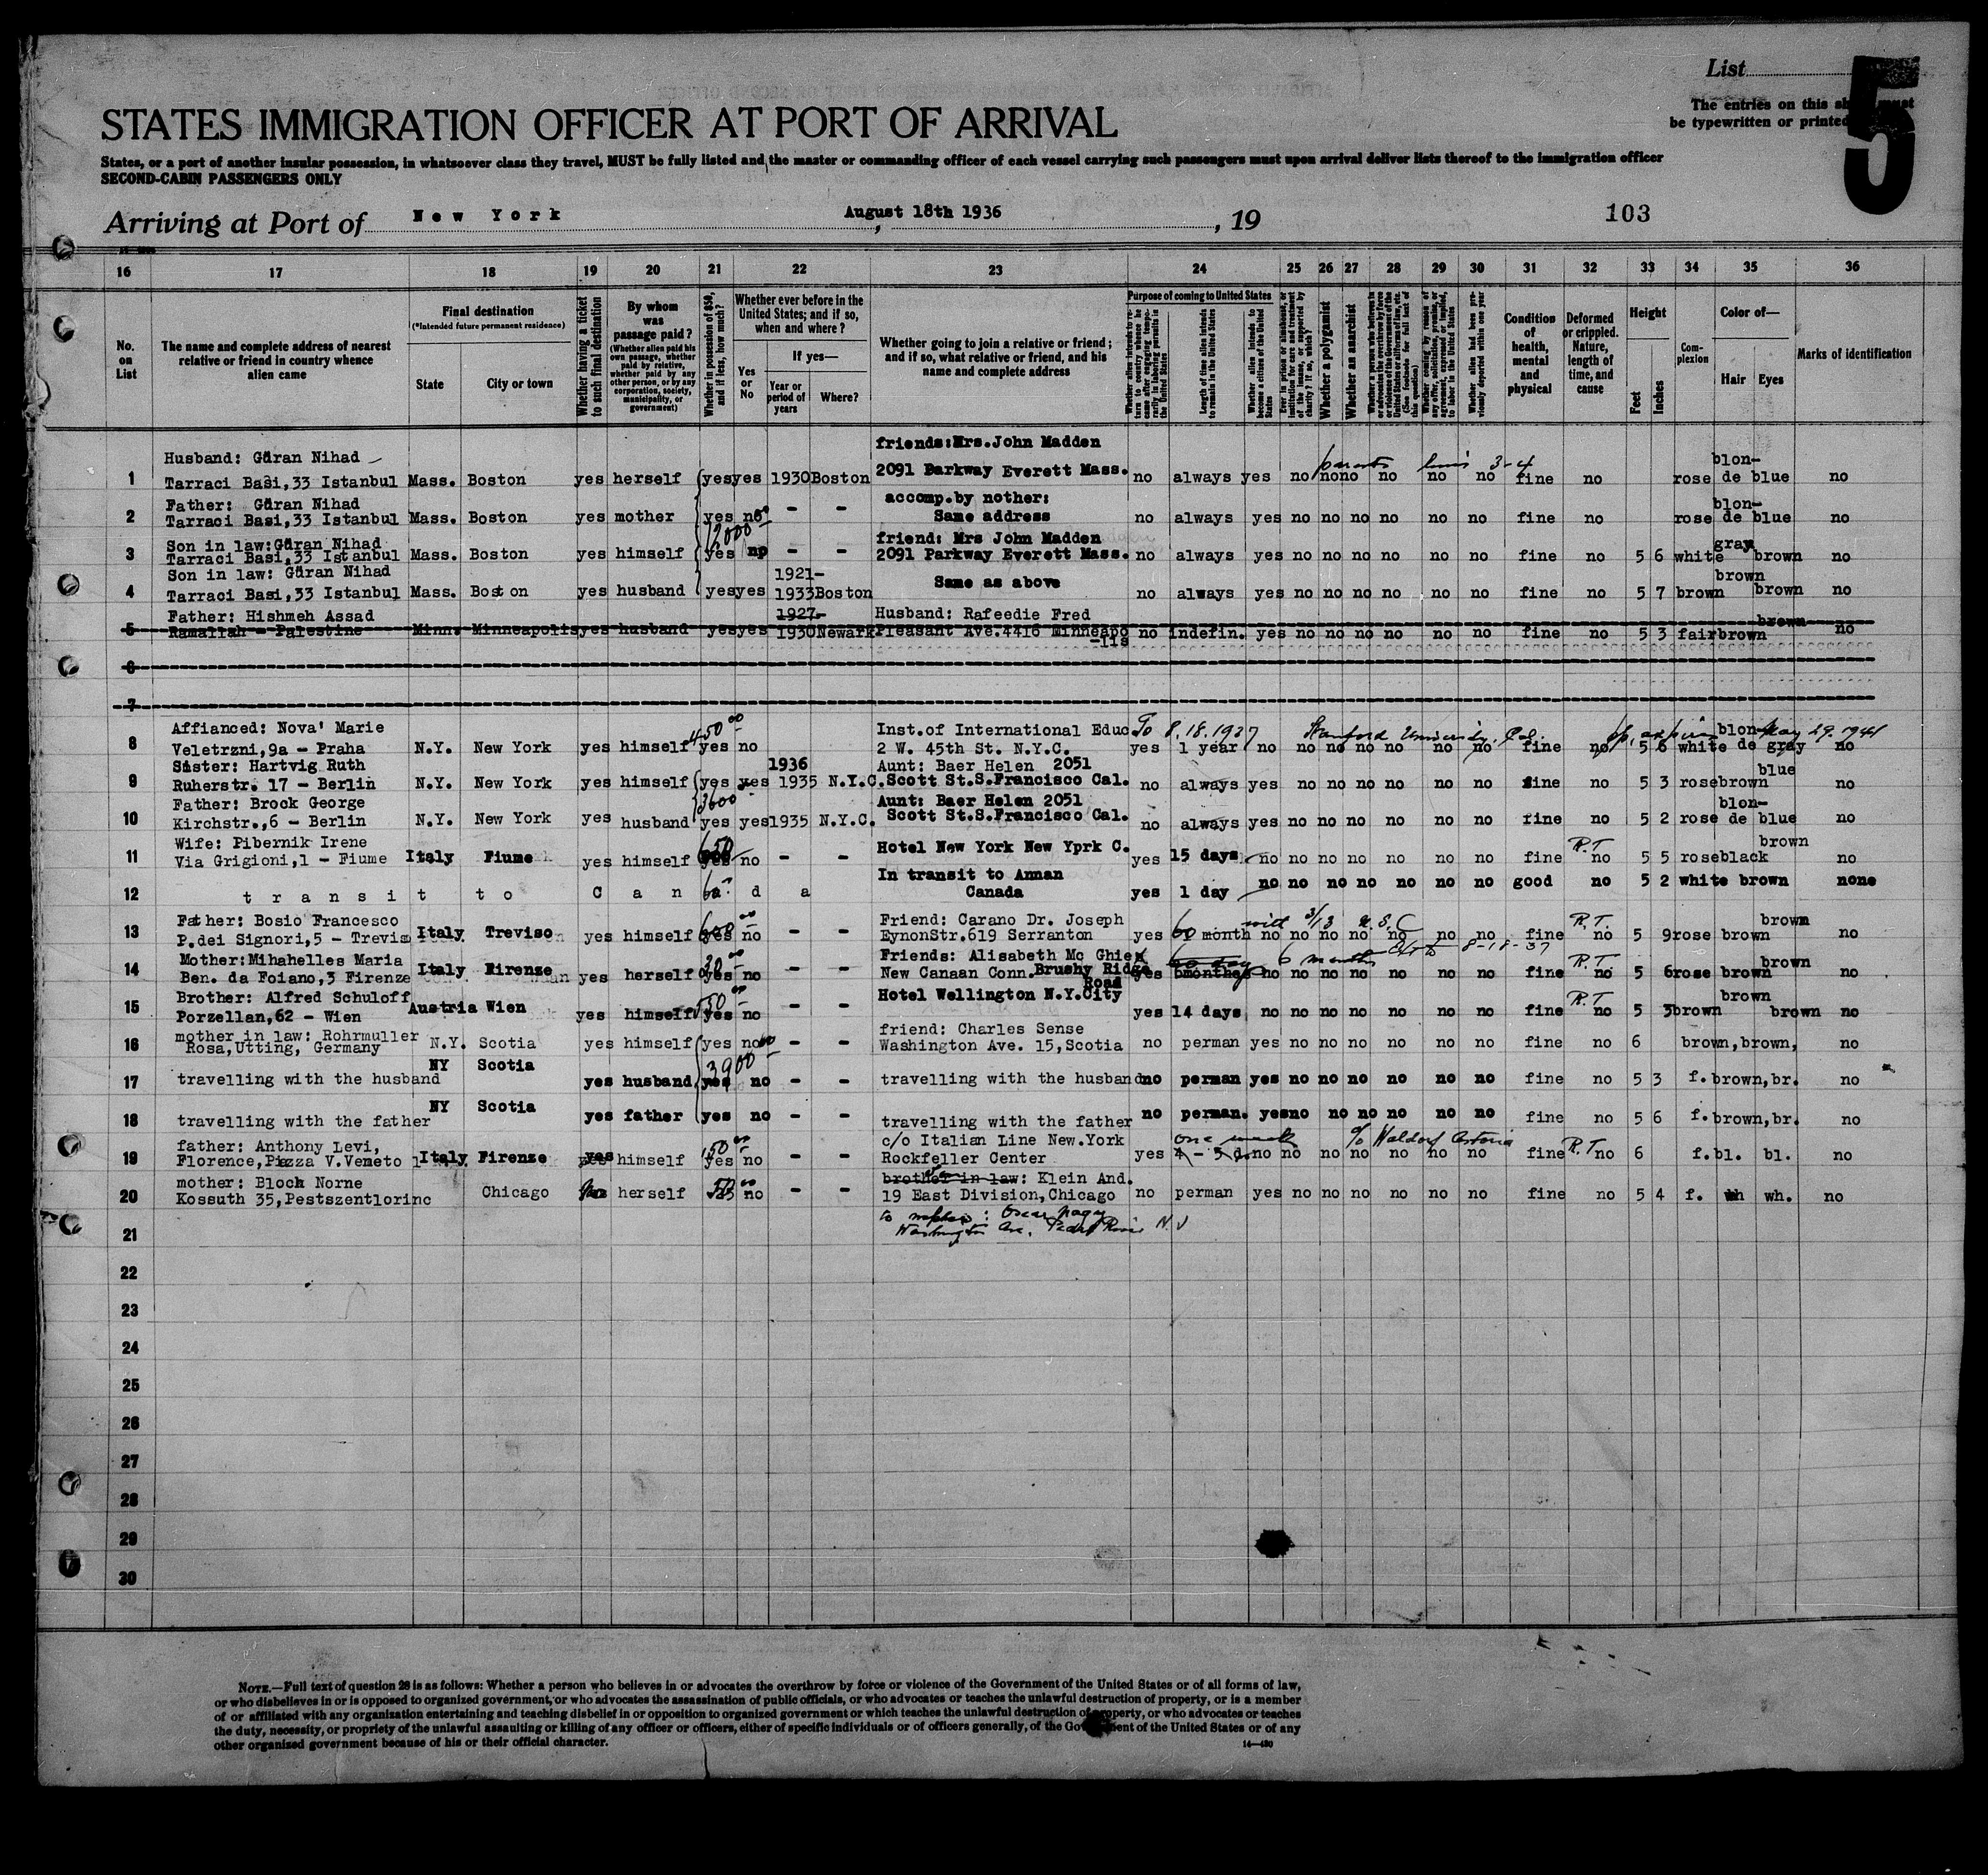 List
5
The entries on this
be typewritten or printed
STATES IMMIGRATION OFFICER AT PORT OF ARRIVAL
States, or a port of another insular possession, in whatsoever class they travel, MUST be fully listed and the master or commanding officer of each vessel carrying such passengers must upon arrival deliver lists thereof to the immigration officer
SECOND-CABIN PASSENGERS ONLY
Arriving at Port of New York , August 18th 1936 , 19 103
16 17 18 19 20 21 22 23 24 25 26 27 28 29 30 31 32 33 34 35 36
No. on List
The name and complete address of nearest relative or friend in country whence alien came
Final destination
(*Intended future permanent residence)
State City or town
Whether having a ticket to such final destination
By whom was passage paid?
(Whether alien paid his own passage, whether paid by relative, whether paid by any other person, or by any corporation, society, municipality, or government)
Whether in possession of $50, and if less, how much?
Whether ever before in the United States; and if so, when and where?
Yes or No
If yes—
Year or period of years Where?
Whether going to join a relative or friend; and if so, what relative or friend, and his name and complete address
Purpose of coming to United States
Whether alien intends to return to country whence he came after engaging temporarily in laboring pursuits in the United States
Length of time alien intends to remain in the United States
Whether alien intends to become a citizen of the United States
Ever in prison or almshouse, or institution for care and treatment of the insane, or supported by charity? If so, which?
Whether a polygamist
Whether an anarchist
Whether a person who believes in or advocates the overthrow by force or violence of the Government of the United States or all forms of law, etc. (See footnote for full text of this question)
Whether coming by reason of any offer, solicitation, promise, or agreement, expressed or implied, to labor in the United States
Whether alien had been previously deported within one year
Condition of health, mental and physical
Deformed or crippled. Nature, length of time, and cause
Height
Feet Inches
Complexion
Color of—
Hair Eyes
Marks of identification
friends:Mrs.John Madden
Husband: Güran Nihad
1 Tarraci Basi,33 Istanbul Mass. Boston yes herself yes yes 1930 Boston 2091 Parkway Everett Mass. no always yes no no no no no no fine no rose blonde blue no
parents 3-4
Father: Güran Nihad accomp.by nother:
2 Tarraci Basi,33 Istanbul Mass. Boston yes mother yes no - - Same address no always yes no no no no no no fine no rose blonde blue no
12000
Son in law:Güran Nihad friend: Mrs John Madden
3 Tarraci Basi,33 Istanbul Mass. Boston yes himself yes no - - 2091 Parkway Everett Mass. no always yes no no no no no no fine no 5 6 white gray brown no
Son in law: Güran Nihad 1921-
4 Tarraci Basi,33 Istanbul Mass. Boston yes husband yes yes 1933 Boston Same as above no always yes no no no no no no fine no 5 7 brown brown brown no
Father: Hishmeh Assad 1927- Husband: Rafeedie Fred
5 Ramallah - Palestine Minn. Minneapolis yes husband yes yes 1930 Newark Pleasant Ave.4416 Minneapo-lis no indefin. yes no no no no no no fine no 5 3 fair brown brown no
6
7
Affianced: Nova' Marie 450 Inst.of International Educ. To 8.18.1937 Stanford University, Cal. May 29.1941
8 Veletrzni,9a - Praha N.Y. New York yes himself yes no 2 W. 45th St. N.Y.C. yes 1 year no no no no no no no fine no 5 6 white blonde gray no
Sister: Hartvig Ruth 1936 Aunt: Baer Helen 2051
9 Ruherstr. 17 - Berlin N.Y. New York yes himself yes yes 1935 N.Y.C. Scott St.S.Francisco Cal. no always yes no no no no no no fine no 5 3 rose brown blue no
3600
Father: Brock George Aunt: Baer Helen 2051
10 Kirchstr.,6 - Berlin N.Y. New York yes husband yes yes 1935 N.Y.C. Scott St.S.Francisco Cal. no always yes no no no no no no fine no 5 2 rose blonde blue no
Wife: Pibernik Irene 650 R.T.
11 Via Grigioni,1 - Fiume Italy Fiume yes himself no - - Hotel New York New Yprk C. yes 15 days no no no no no no no fine no 5 5 rose black brown no
In transit to Annan
12 transit to Canada Canada yes 1 day no no no no no no no good no 5 2 white brown none
Father: Bosio Francesco Friend: Carano Dr. Joseph R.T.
13 P.dei Signori,5 - Treviso Italy Treviso yes himself yes no - - EynonStr.619 Serranton yes month no no no no no no no fine no 5 9 rose brown brown no
Mother:Mihahelles Maria Friends: Alisabeth Mc Ghie 6 months 8-18-37 R.T.
14 Ben. da Foiano,3 Firenze Italy Firenze yes herself yes no - - New Canaan Conn. Brushy Ridge Road yes 6months no no no no no no no fine no 5 6 rose brown brown no
Brother: Alfred Schuloff 550 Hotel Wellington N.Y.City R.T
15 Porzellan,62 - Wien Austria Wien yes himself yes no - - yes 14 days no no no no no no no fine no 5 3 brown brown brown no
mother in law: Rohrmuller friend: Charles Sense
16 Rosa,Utting, Germany N.Y. Scotia yes himself yes no - - Washington Ave. 15,Scotia no perman yes no no no no no no fine no 6 brown,brown, no
3900
17 travelling with the husband NY Scotia yes husband yes no - - travelling with the husband no perman yes no no no no no no fine no 5 3 f. brown,br. no
18 travelling with the father NY Scotia yes father yes no - - travelling with the father no perman. yes no no no no no no fine no 5 6 f. brown,br. no
father: Anthony Levi, 150 c/o Italian Line New.York one week c/o Waldorf Astoria
19 Florence,Piazza V.Veneto 1 Italy Firenze yes himself yes no - - Rockfeller Center yes 4 - 5 d. no no no no no no no fine R.T. no 6 f. bl. bl. no
mother: Bloch Norne brother in law: Klein And.
20 Kossuth 35,Pestszentlorinc Chicago herself no - - 19 East Division,Chicago no perman yes no no no no no no fine no 5 4 f. wh wh. no
to nephew: Oscar Nagy
21 Washington Ave. Pearl River N.J
22
23
24
25
26
27
28
29
30
NOTE.—Full text of question 28 is as follows: Whether a person who believes in or advocates the overthrow by force or violence of the Government of the United States or of all forms of law,
or who disbelieves in or is opposed to organized government, or who advocates the assassination of public officials, or who advocates or teaches the unlawful destruction of property, or is a member
of or affiliated with any organization entertaining and teaching disbelief in or opposition to organized government or which teaches the unlawful destruction of property, or who advocates or teaches
the duty, necessity, or propriety of the unlawful assaulting or killing of any officer or officers, either of specific individuals or of officers generally, of the Government of the United States or of any
other organized government because of his or their official character.
14—430